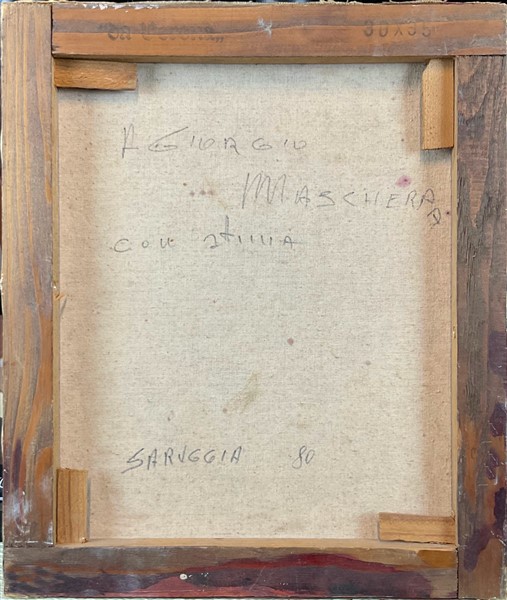 30x35
A GIORGIO
... MASCHERA
con stima
SARUGGIA 80